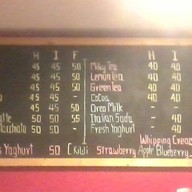 H I F H I
45 45 50 Milky Tea 40 40
45 45 50 Lemon Tea 40 40
45 45 50 Green tea 40 40
45 45 - Cocoa 40 40
45 45 50 Oreo Milk - 40
50 50 55 Italian Soda - 40
50 50 - Fresh Yoghurt - 40
Whipping Cream
Yoghurt 50 [Kiwi Strawberry Apple Blueberry